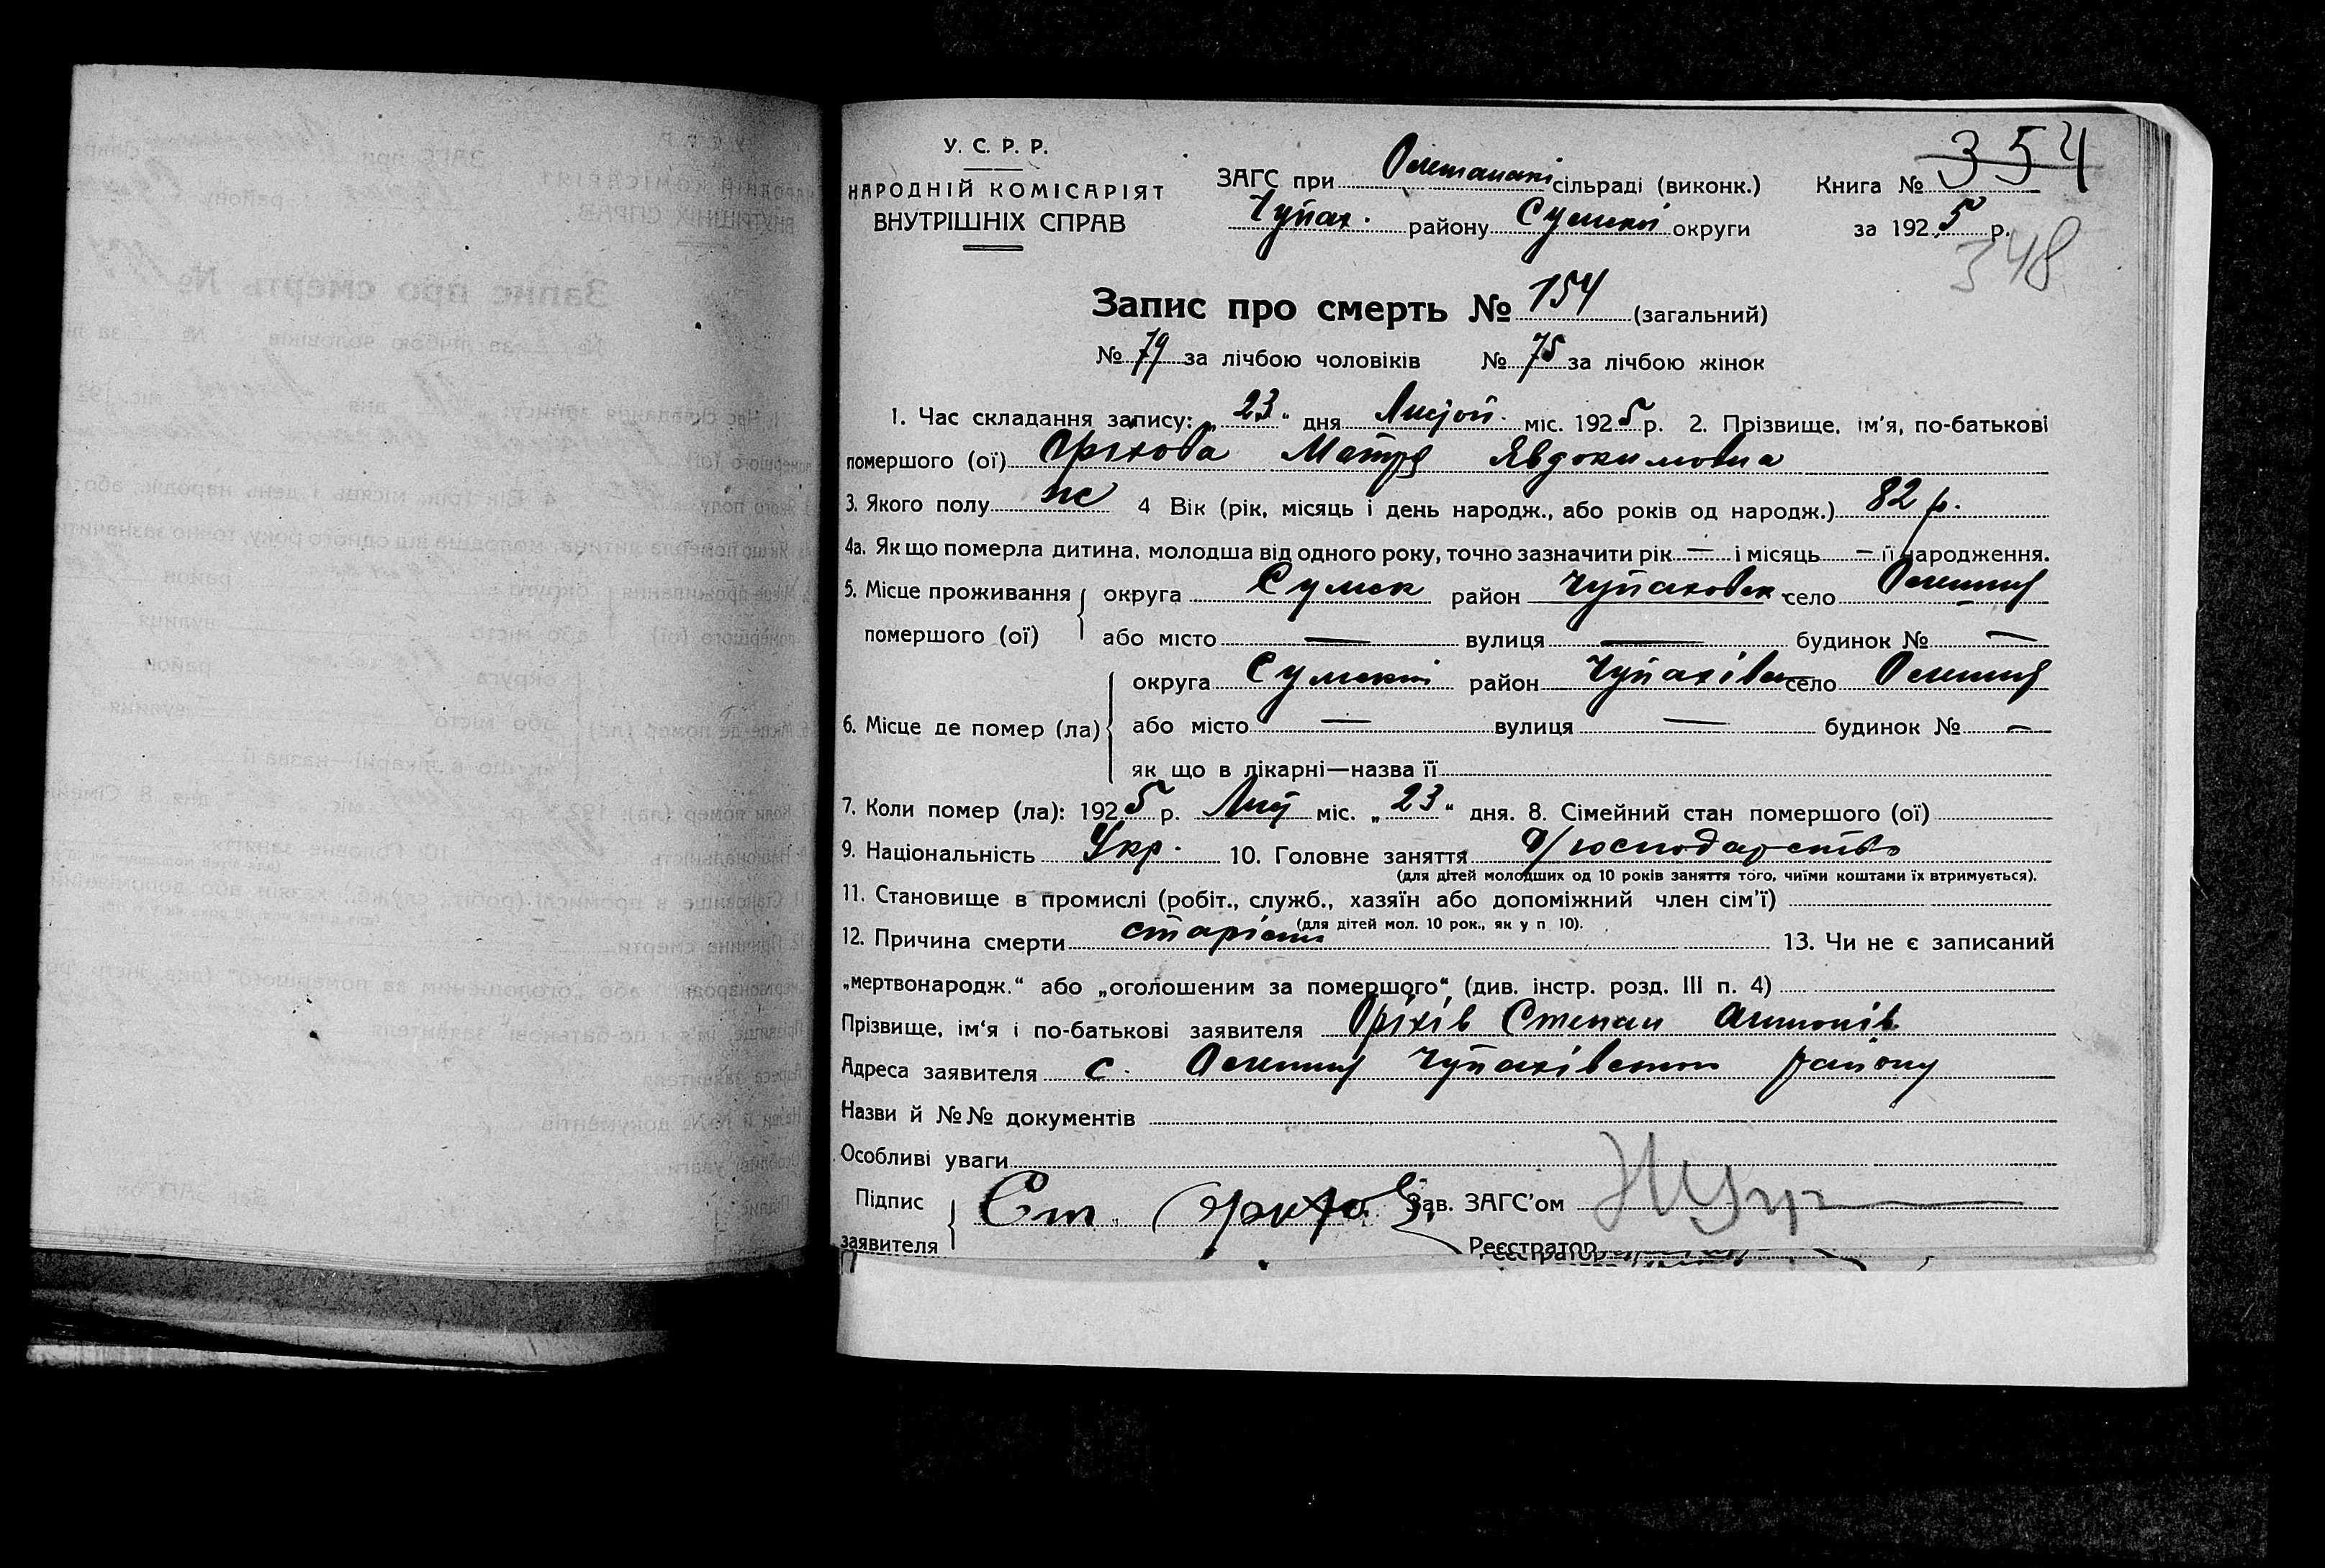 У. С. Р. Р.
НАРОДНІЙ КОМІСАРІЯТ
ВНУТРІШНІХ СПРАВ
ЗАГС при сільраді (виконк.) Книга № 354
Чупах. району Сумської округи за 1925 р.
348
Запис про смерть № 154 (загальний)
№ 79 за лічбою чоловіків № 75 за лічбою жінок
1. Час складання запису: „23“ дня міс. 1925 р. 2. Прізвище, ім'я, по-батькові
помершого (ої) Оріхова Мотря Явдокимовна
3. Якого полу ж 4 Вік (рік, місяць і день народж., або років од народж.) 82 р.
4а. Як що померла дитина, молодша від одного року, точно зазначити рік — і місяць — її народження.
5. Місце проживання помершого (ої) округа Сумск район Чупаховск село Олешня
або місто — вулиця — будинок № —
6. Місце де помер (ла) округа район село Олешня
або місто — вулиця — будинок № —
як що в лікарні—назва її
7. Коли помер (ла): 1925 р. міс. „23“ дня. 8. Сімейний стан помершого (ої)
9. Національність Укр. 10. Головне заняття господарство
(для дітей молодших од 10 років заняття того, чиїми коштами їх втримується).
11. Становище в промислі (робіт., служб., хазяїн або допоміжний член сім'ї)
(для дітей мол. 10 рок., як у п 10).
12. Причина смерти старість 13. Чи не є записаний
„мертвонародж.“ або „оголошеним за помершого“, (див. інстр. розд. III п. 4)
Прізвище, ім'я і по-батькові заявителя Оріхів Степан Антонів
Адреса заявителя с. Олешня Чупахівського району
Назви й №№ документів
Особливі уваги
Підпис заявителя Ст. Зав. ЗАГС'ом
Реєстратор